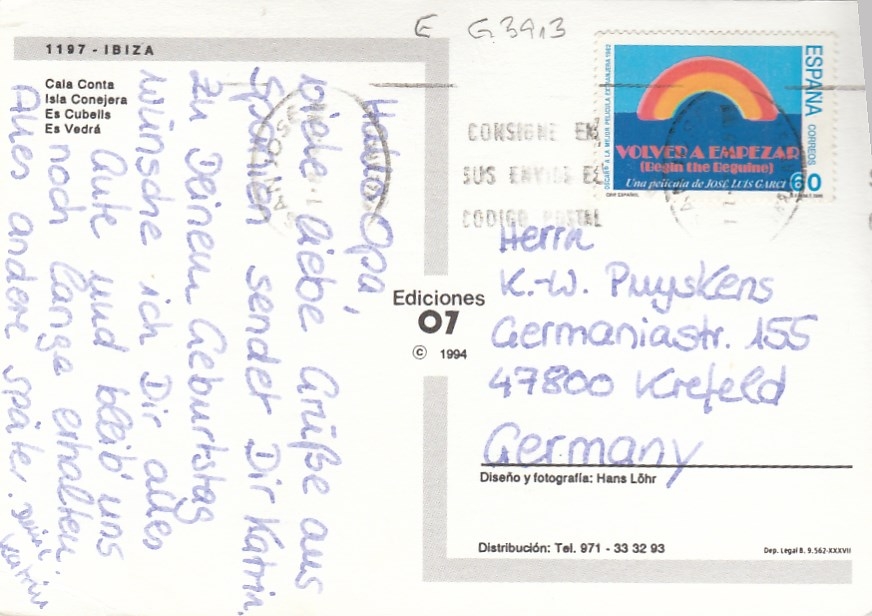 E G.3913
1197 - IBIZA
Cala Conta
Isla Conejera
Es Cubells
Es Vedrá
Hallo Opa,
viele liebe Grüße aus
Spanien sendet Dir Katrin.
Zu Deinem Geburtstag
wünsche ich Dir alles
Gute und bleib' uns
noch lange erhalten.
Alles andere später.
Deine
Katrin
CONSIGNE EN
SUS ENVIOS EL
CODIGO POSTAL
OSCAR A LA MEJOR PELICULA EXTRANJERA 1982
ESPAÑA
CORREOS
VOLVER A EMPEZAR
(Begin the Beguine)
Una película de JOSÉ LUIS GARCI
60
CINE ESPAÑOL
Herrn
K.-W. Puyskens
Germaniastr. 155
47800 Krefeld
Germany
Ediciones
07
© 1994
Diseño y fotografía: Hans Löhr
Distribución: Tel. 971 - 33 32 93
Dep. Legal B. 9.562-XXXVII